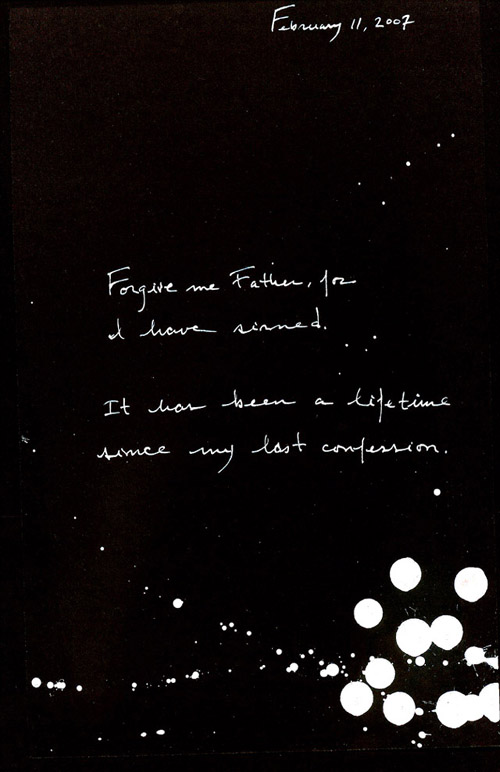 February 11, 2007
Forgive me Father, for
I have sinned.
It has been a lifetime
since my last confession.